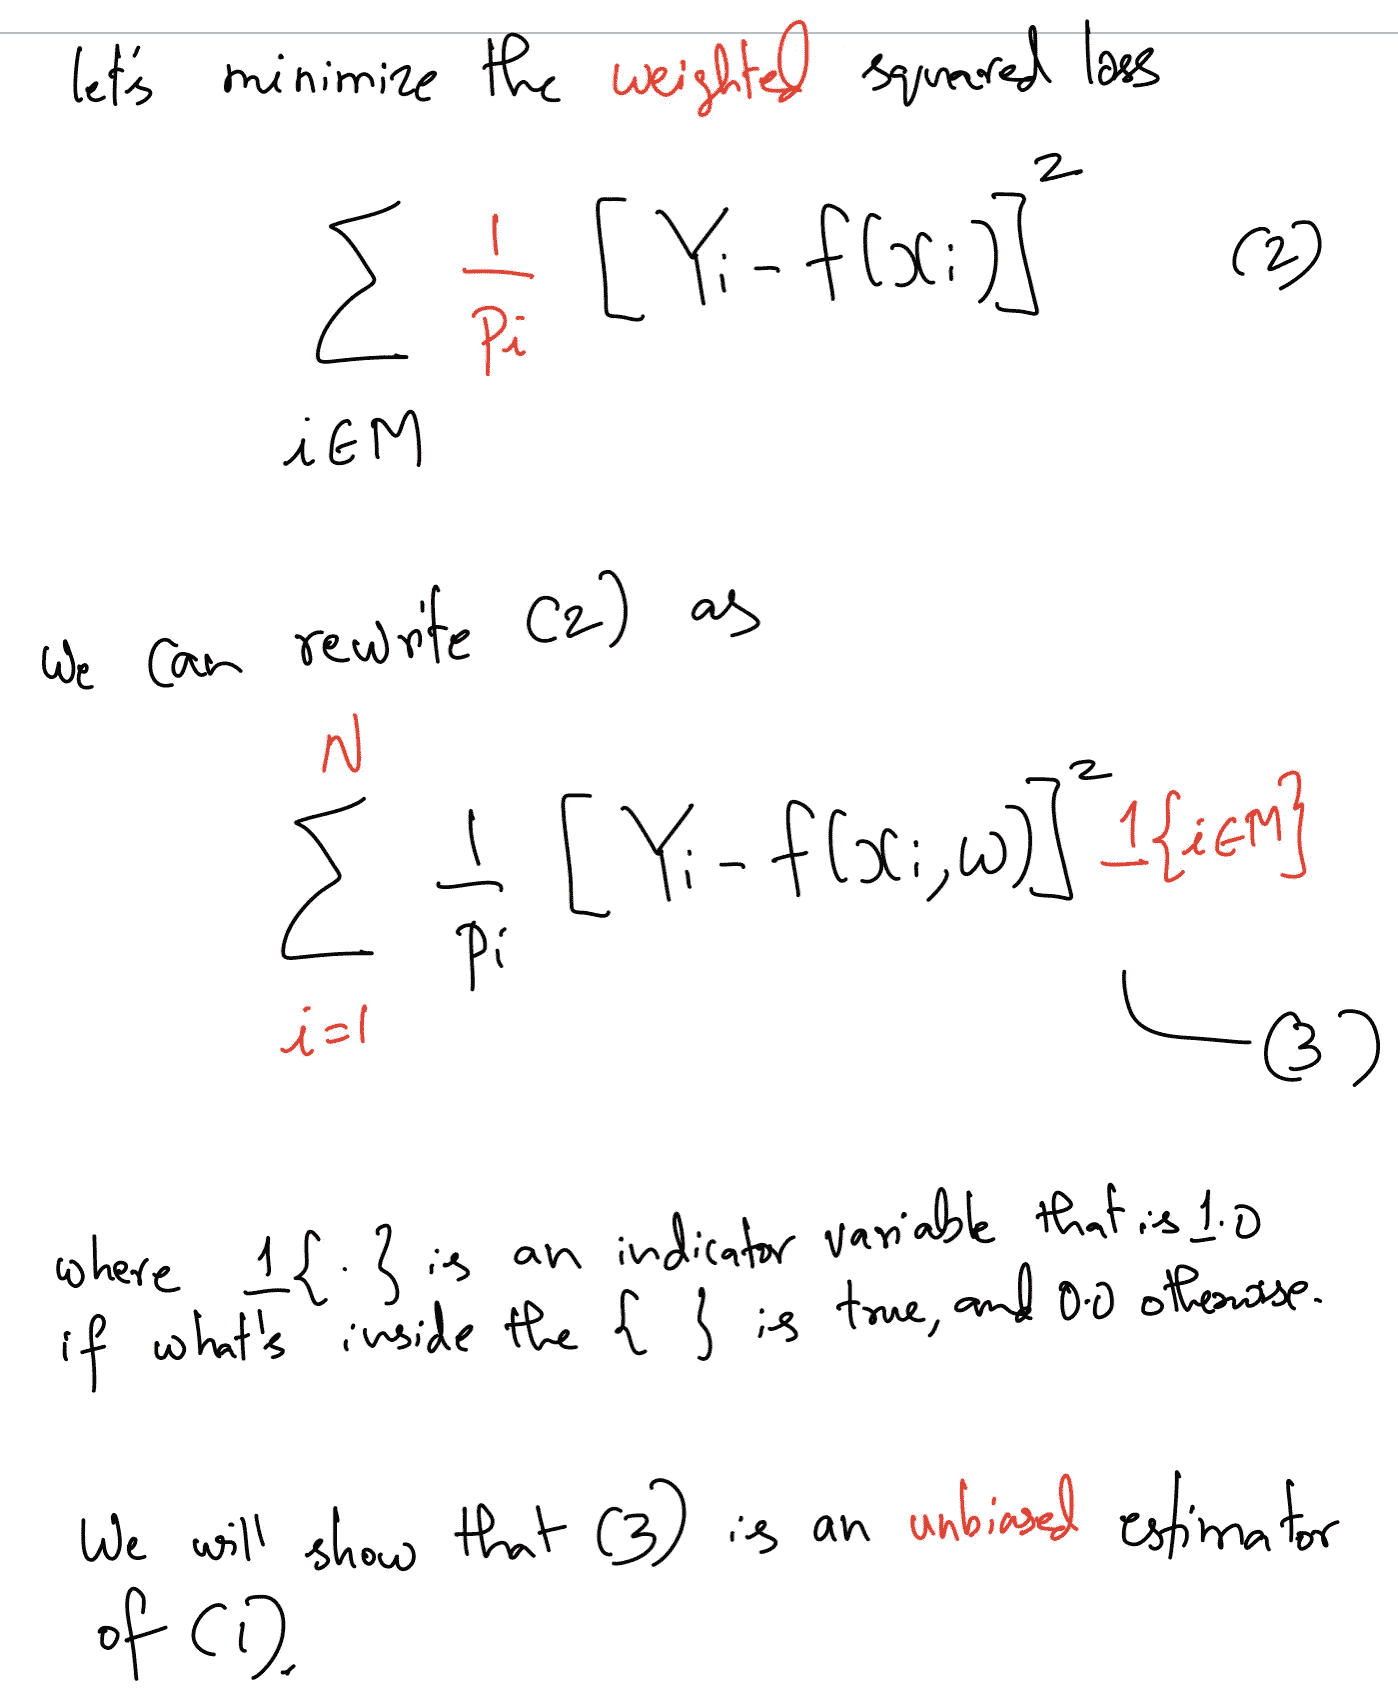 let's minimize the weighted squared loss
∑_{i∈M} 1/Pi [Yi - f(xi)]² (2)
We can rewrite (2) as
∑_{i=1}^{N} 1/Pi [Yi - f(xi,w)]² 1{i∈M}
(3)
where 1{·} is an indicator variable that is 1.0
if what's inside the { } is true, and 0.0 otherwise.
We will show that (3) is an unbiased estimator
of (1).